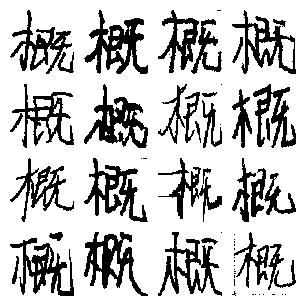 概概概概
概概概概
概概概概
概概概概